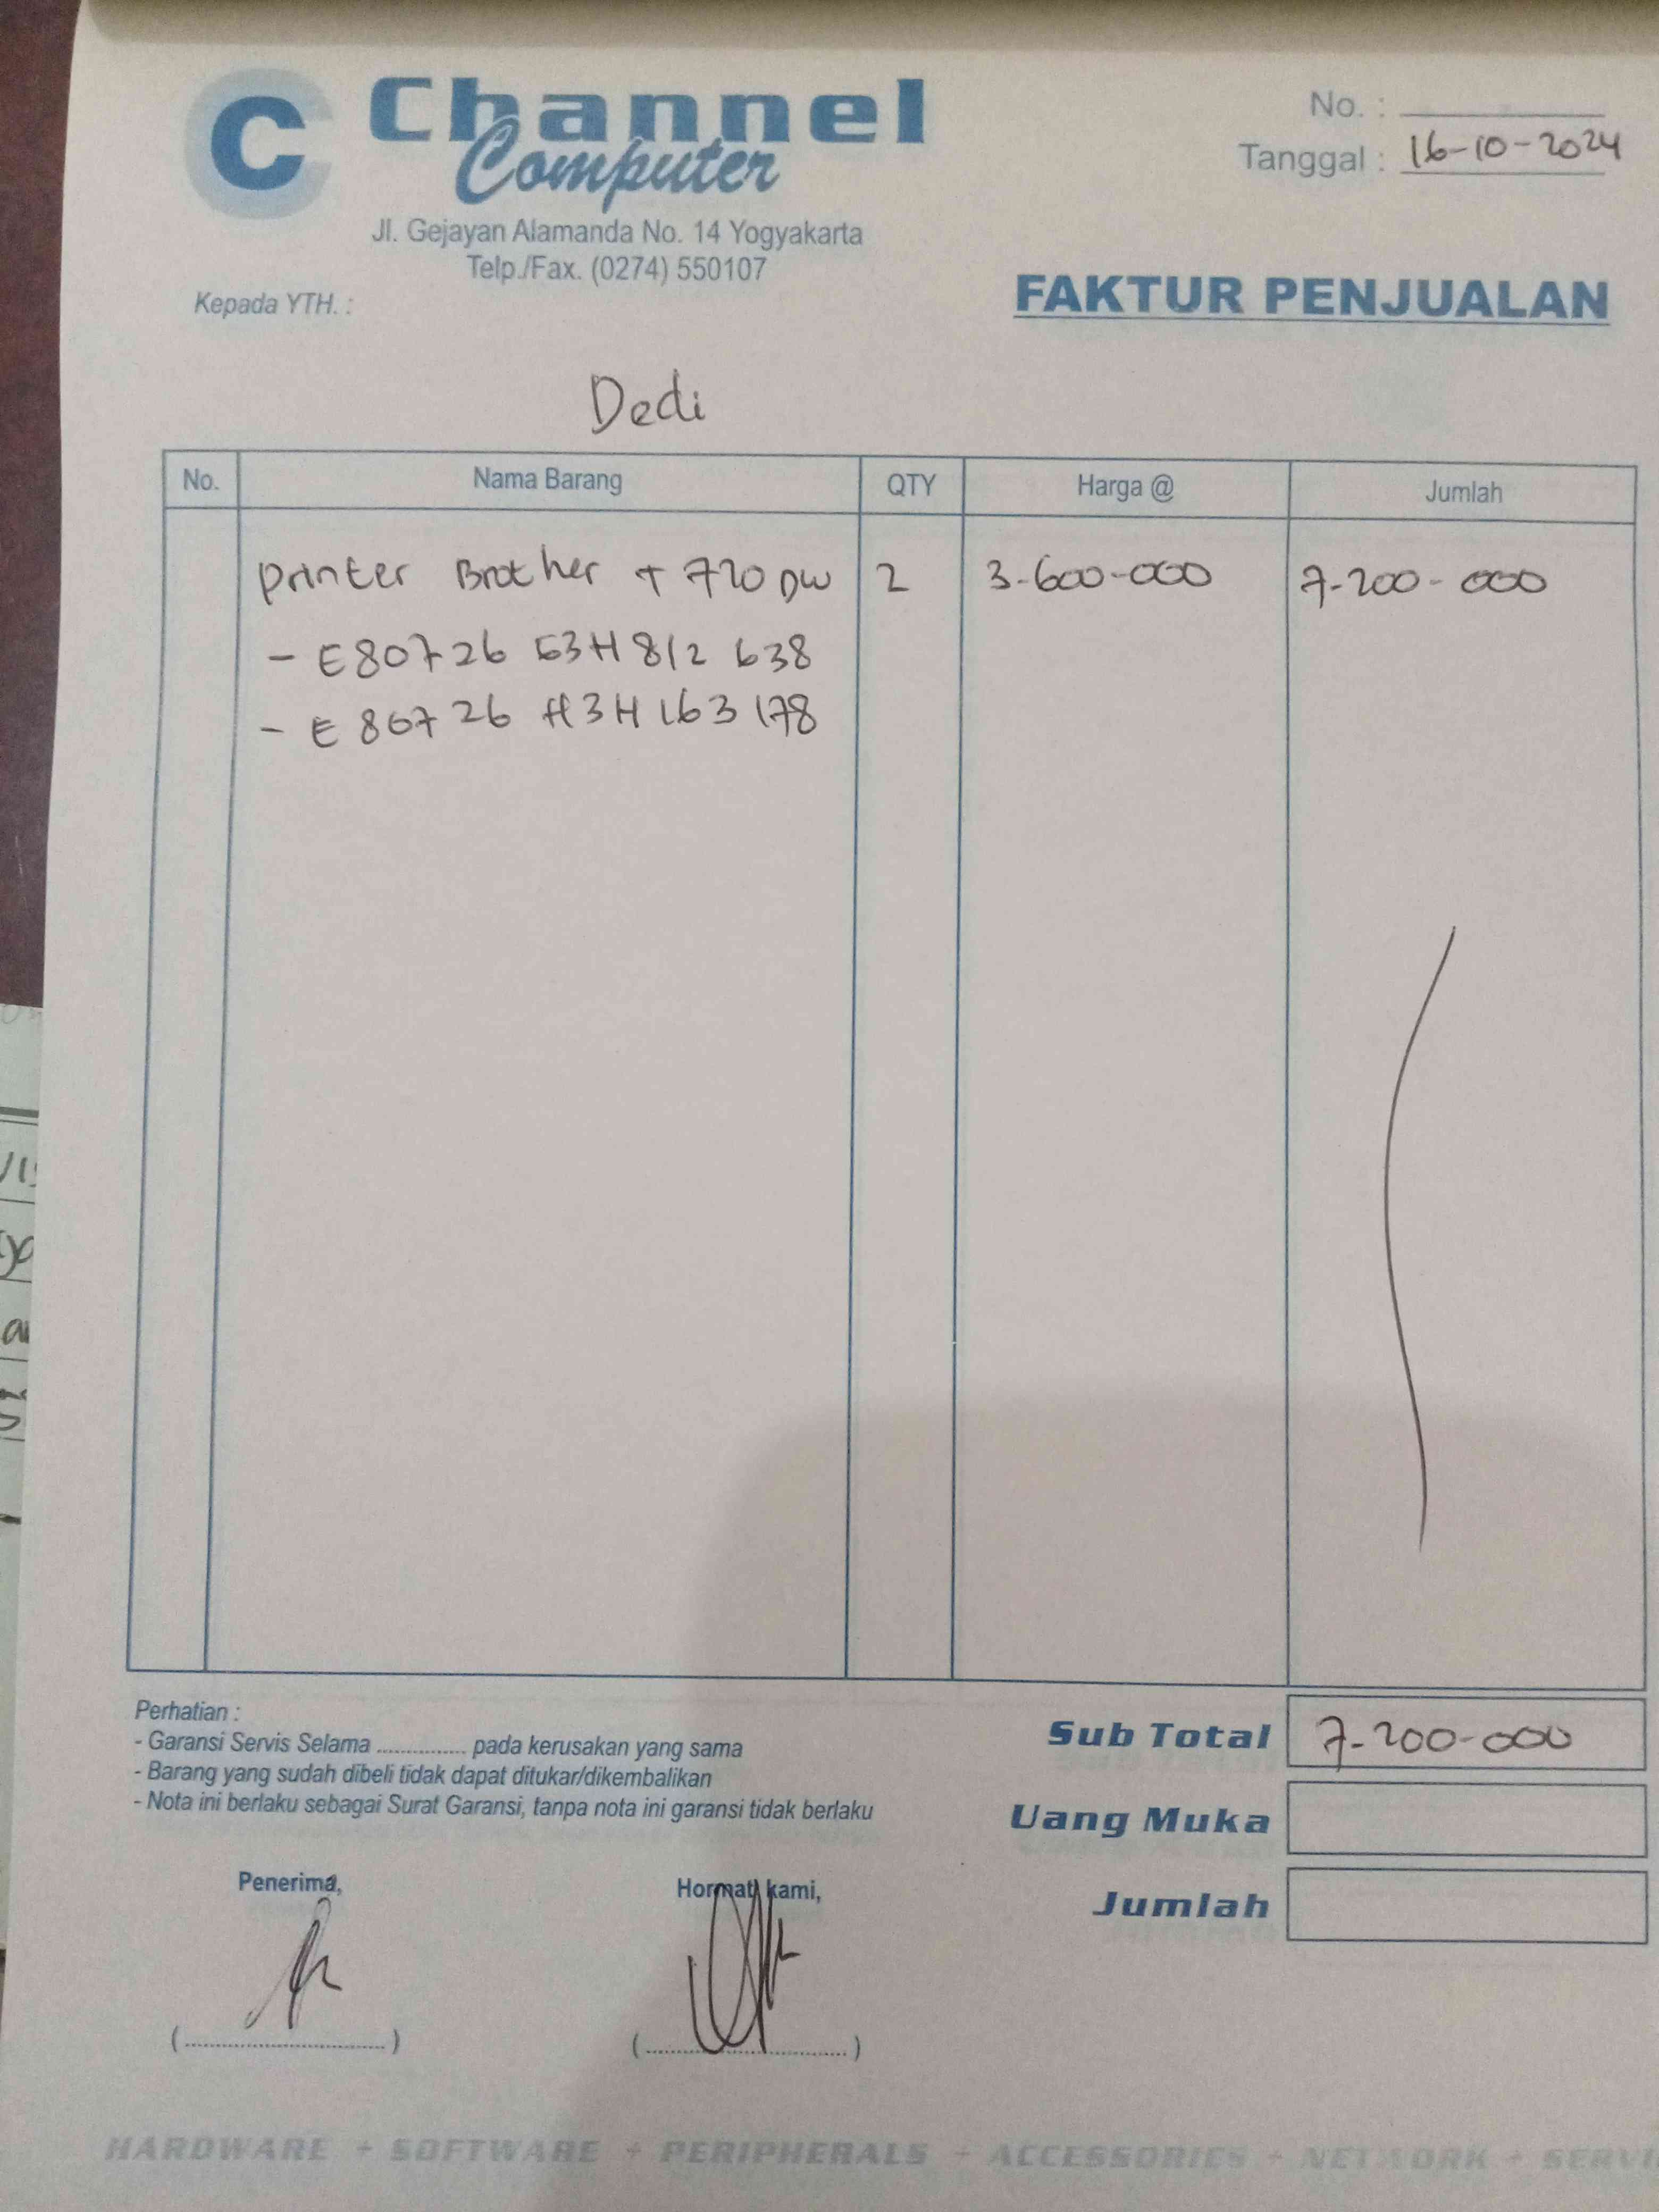 C Channel
Computer
Jl. Gejayan Alamanda No. 14 Yogyakarta
Telp./Fax. (0274) 550107
No. :
Tanggal : 16-10-2024
Kepada YTH. :
FAKTUR PENJUALAN
Dedi
No. Nama Barang QTY Harga @ Jumlah
Printer Brother T 720 DW 2 3-600-000 7-200-000
- E80726 63H812 638
- E80726 H3H163178
Perhatian :
- Garansi Servis Selama ............... pada kerusakan yang sama
- Barang yang sudah dibeli tidak dapat ditukar/dikembalikan
- Nota ini berlaku sebagai Surat Garansi, tanpa nota ini garansi tidak berlaku
Sub Total 7-200-000
Uang Muka
Jumlah
Penerima, Hormat kami,
(..................................) (..................................)
HARDWARE + SOFTWARE + PERIPHERALS + ACCESSORIES + NETWORK + SERVI